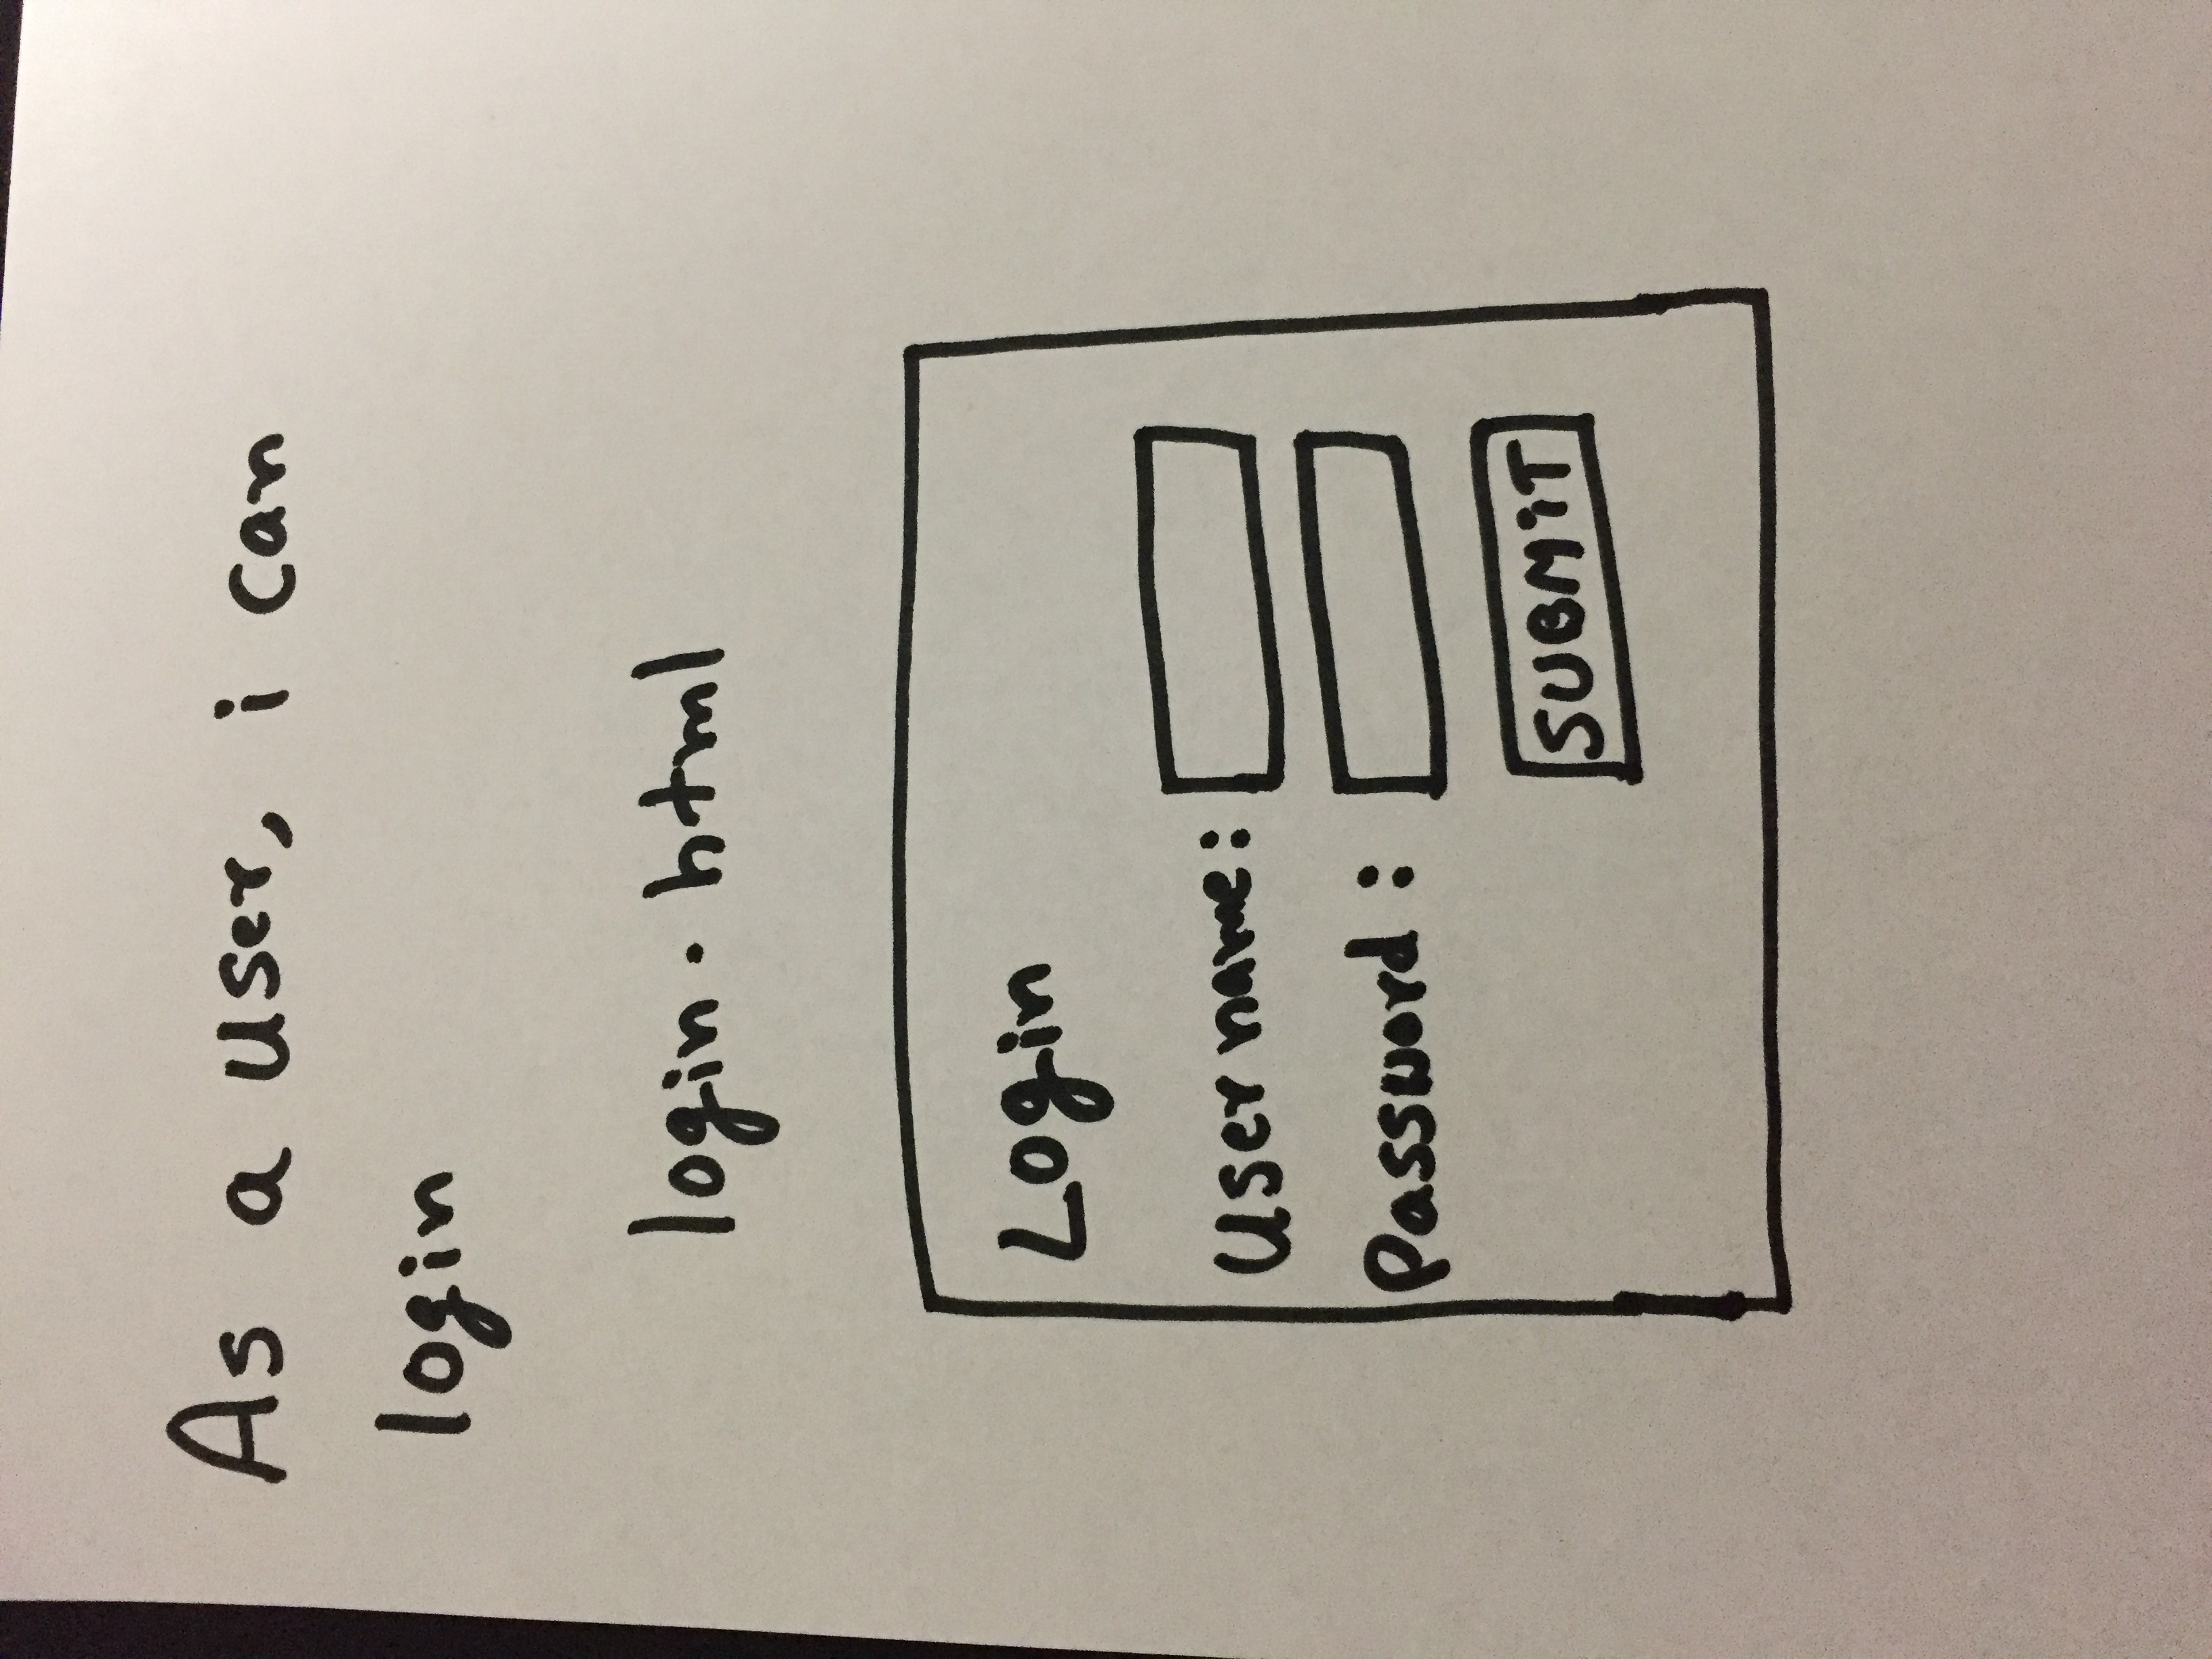 As a user, i can
login
login.html
Login
Username:
Password:
SUBMiT